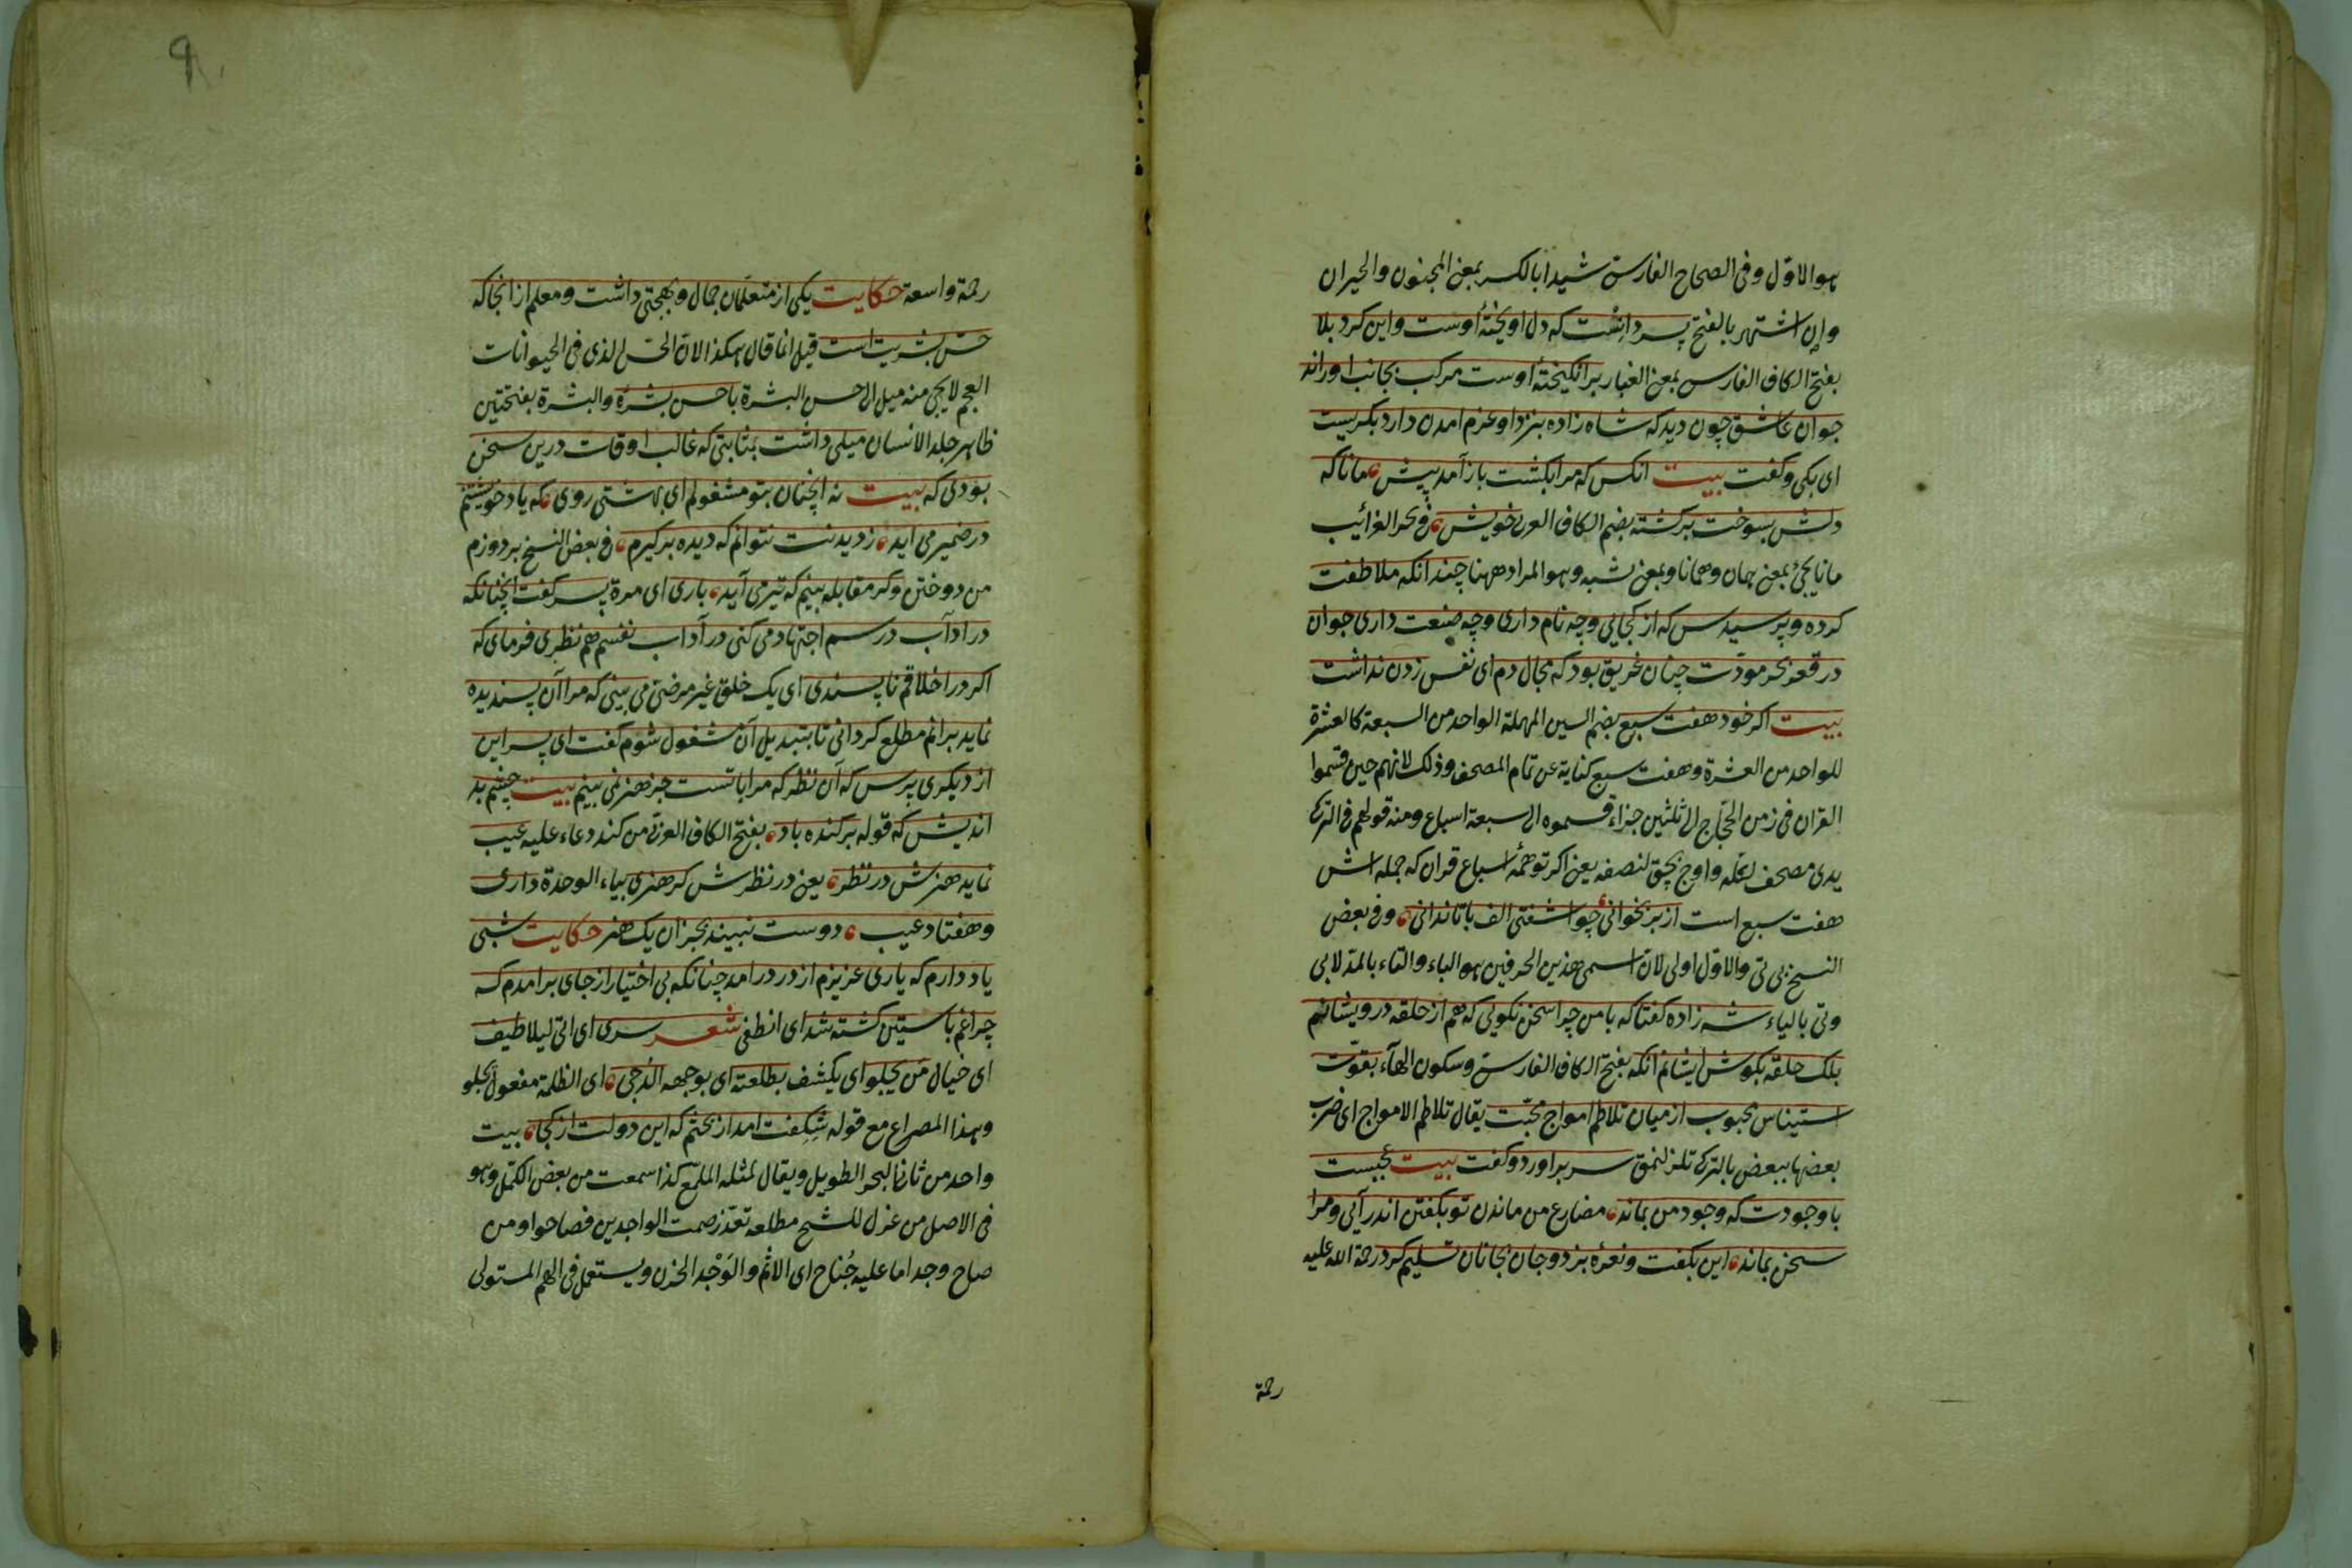 هو الاوّل وفى الصحاح الفارسى شيدا بالكسر بمعنى المجنون والحيران
وان اشتهر بالفتح پسر دانست كه دل اويختۀ اوست واين كرد بلا
بفتح الكاف الفارسى بمعنى الغبار برانكيختۀ اوست مركب بجانب او راند
جوان عاشق چون ديد كه شاه زاده بنزد او عزم امدن دارد بكريست
اى بكى وكفت بيت انكس كه مرا بكشت باز آمد پيش، مانا كه
دلش بسوخت بر كشته بضم الكاف العربى خويش، وفى بحر الغرائب
مانا يجئ بمعنى همان وهمانا وبمعنى شبه وهو المراد ههنا چندانكه ملاطفت
كرده وپرسيدس كه از كجايى وچه نام دارى وچه صنعت دارى جوان
در قعر بحر مودّت چنان غريق بود كه مجال دم اى نفس زدن نداشت
بيت اكر خود هفت سبع بضم السين المهملة الواحد من السبعة كالعشرة
للواحد من العشرة وهفت سبع كناية عن تمام المصحف وذلك لانهم حين قسموا
القران فى زمن الحجّاج الى ثلثين جزاء قسموه الى سبعة اسباع ومنه قولهم فى التركى
يدى مصحف لكله واوج بچق لنصفه يعنى اكر تو همۀ اسباع قران كه جمله اش
هفت سبع است از بر بخوانى، چو اشفتى الف با تا ندانى، وفى بعض
النسخ بى تى والاول اولى لان اسمى هذين الحرفين هو الباء والتاء بالمد لا بى
وتى بالياء شه زاده كفتا كه با من چرا سخن نكويى كه هم از حلقه درويشانم
بلك حلقه بكوش ايشانم انكه بفتح الكاف الفارسى وسكون الهآء بقوّت
استيناس محبوب از ميان تلاطم امواج محبّت يقال تلاطم الامواج اى ضرب
بعضها ببعض بالتركى تلزلنمق سر براورد وكفت بيت عجبست
با وجودت كه وجود من بماند، مضارع من ماندن تو بكفتن اندر آيى ومرا
سخن بماند، اين بكفت ونعرۀ بزد وجان بجانان تسليم كرد رحمة الله عليه
رحمة
رحمة واسعة حكايت يكى از متعلّمان جمال وبهجتى داشت ومعلم از انجا كه
حسّ بشريت است قيل انما قال هكذا لان الحس الذى فى الحيوانات
العجم لا يجئ منه ميل الى حسن البشرة با حسن بشرۀ والبشرة بفتحتين
ظاهر جلد الانسان ميلى داشت بمثابتى كه غالب اوقات درين سخن
بودى كه بيت نه انچنان بتو مشغولم اى بهشتى روى، كه ياد خويشتنم
در ضمير مى ايد، ز ديدنت نتوانم كه ديده بر كيرم، فى بعض النسخ بر دوزم
من دوختن وكر مقابله بينم كه تير مى آيد، بارى اى مرة پسر كفت انچنانكه
در ادآب درسم اجتهاد مى كنى در آداب نفسم هم نظرى فرماى كه
اكر در اخلاقم ناپسندى اى يك خلق غير مرضىّ مى بينى كه مرا آن پسنديده
نمايد برانم مطلع كردانى تا بتبديل آن مشغول شوم كفت اى پسر اين
از ديكرى پرس كه آن نظر كه مرا با تست جز هنر نمى بينم بيت چشم بد
انديش كه قوله بر كنده باد، بفتح الكاف العربى من كند دعاء عليه عيب
نمايد هنرش در نظر، يعنى در نظرش كر هنرى بياء الوحدة دارى
وهفتاد عيب، دوست نبيند بجز ان يك هنر حكايت شبى
ياد دارم كه يارى عزيزم از در درامد چنانكه بى اختيار از جاى برامدم كه
چراغم باستين كشته شد اى انطفى شعر سرى اى اتى ليلا طيف
اى خيال من يجلو اى يكشف بطلعته اى بوجهه الدّجى، اى الظلمة مفعول يجلو
وهذا المصراع مع قوله شكفت امد از بختم كه اين دولت از كجا، بيت
واحد من ثانى البحر الطويل ويقال لمثله الملمّع كذا سمعت من بعض الكمّل وهو
فى الاصل من غزل للشيخ مطلعه تعذّر صمت الواجدين فصاحوا ومن
صاح وجدا ما عليه جُناح اى الاثم والوَجْد الحزن ويستعمل فى الهم المستولى